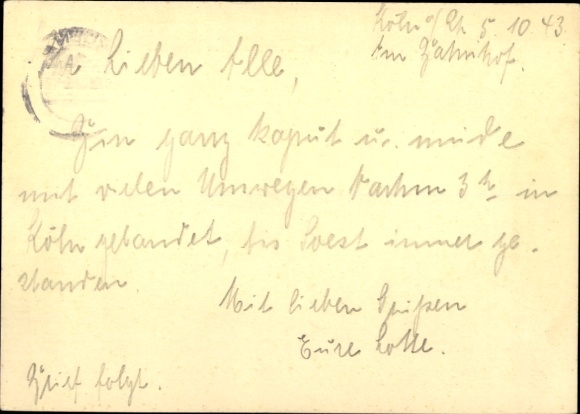 Köln a/Rh. 5.10.43.
Im Bahnhof.
Ihr Lieben Alle,
Bin ganz kaput u. müde
mit vielen Umwegen nachm 3 h in
Köln gelandet, bis Soest immer ge-
standen.
Mit lieben Grüßen
Eure Lotte.
Brief folgt.